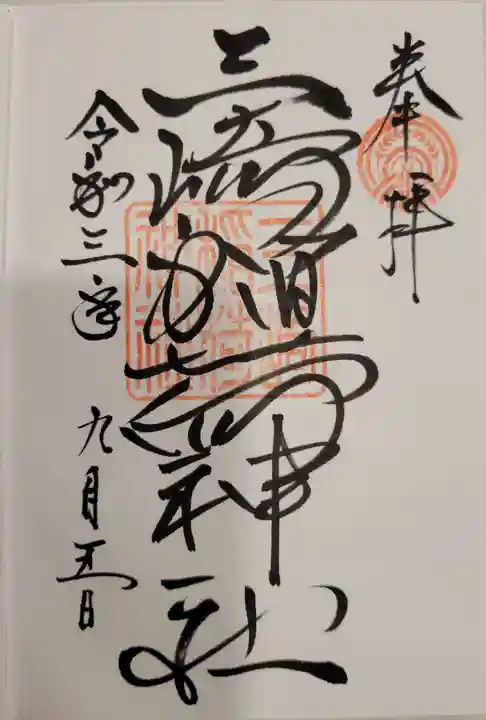 奉拝
三崎稲荷神社
令和三年
九月五日